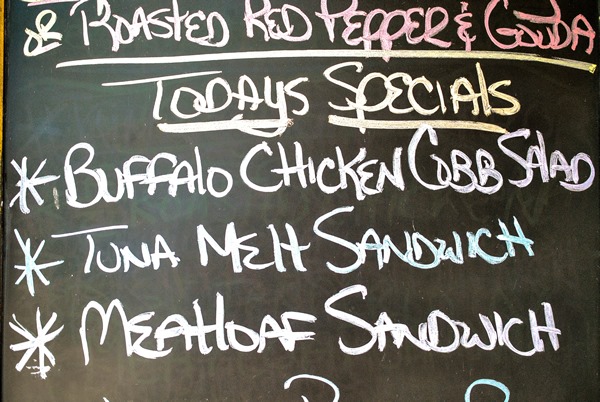 or Roasted Red Pepper & Gouda
Todays Specials
* Buffalo Chicken Cobb Salad
* Tuna Melt Sandwich
* Meatloaf Sandwich